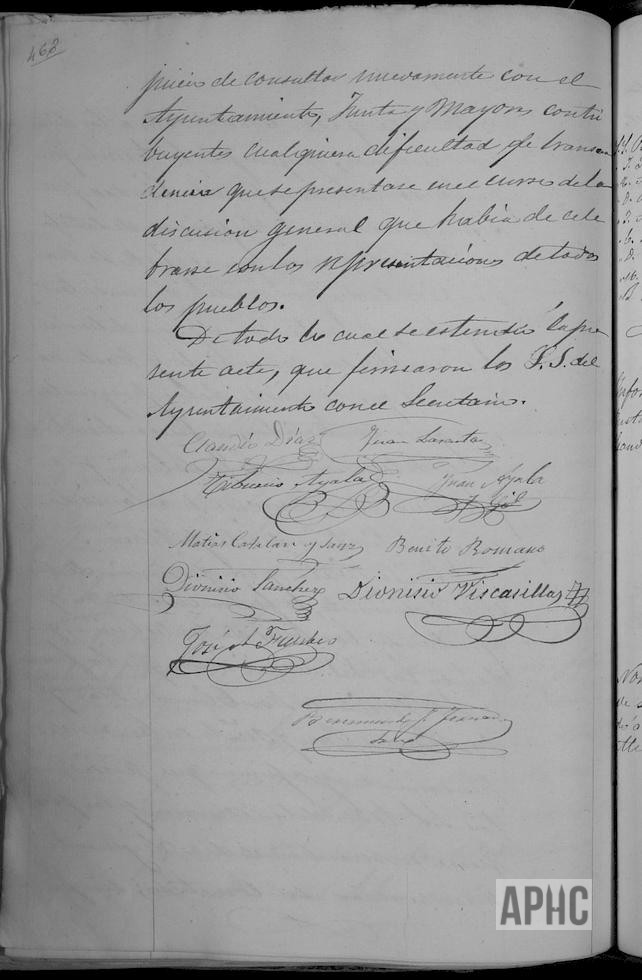 468
juicio de consultar nuevamente con el
Ayuntamiento, Junta y Mayores contri
buyentes cualquiera dificultad de transcen
dencia que se presentase en el curso de la
discusion general que habia de cele
brarse con las representaciones de todos
los pueblos.
De todo lo cual se estendió la pre
sente acta, que firmaron los S.S. del
Ayuntamiento con el Secretario.
Claudio Diaz Juan
Tiburcio Ayala Juan Ayala
y Gil
Matias Catalan y Sanz Benito Romano
Dionisio Sanchez Dionisio Viscasillas
José de Fuentes
APHC